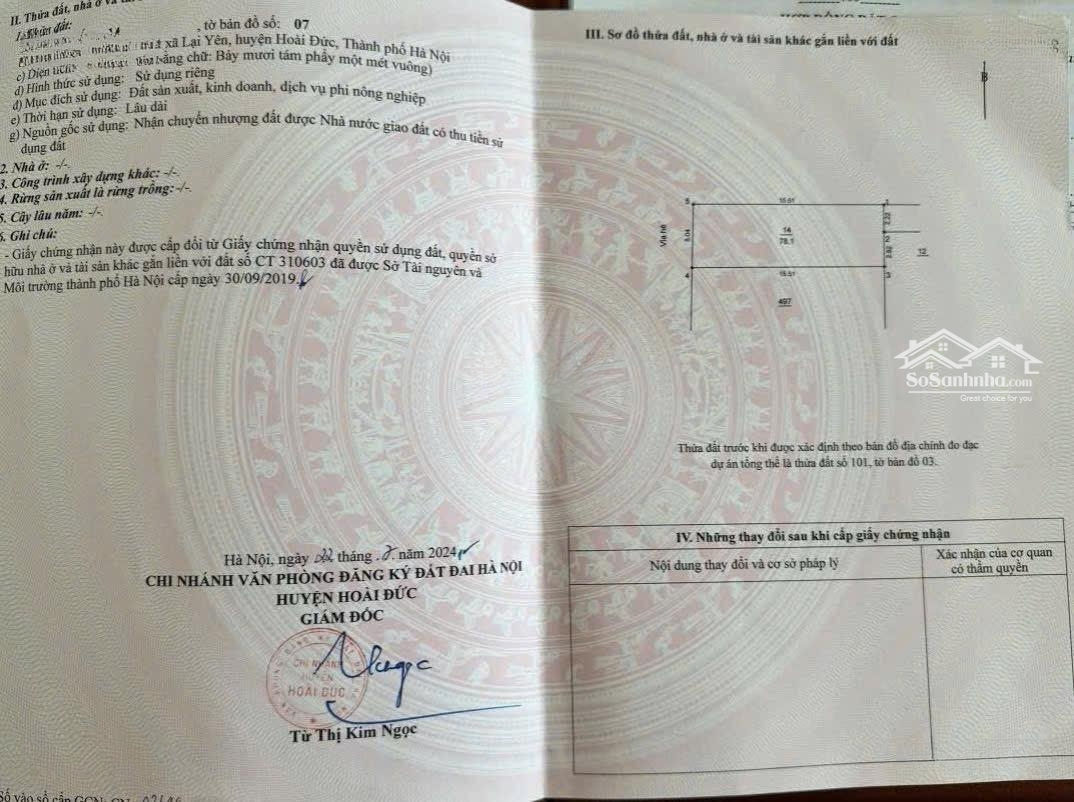 II. Thửa đất, nhà ở và
1. Thửa đất:
, tờ bản đồ số: 07
xã Lại Yên, huyện Hoài Đức, Thành phố Hà Nội
c) Diện bằng chữ: Bảy mươi tám phẩy một mét vuông)
d) Hình thức sử dụng: Sử dụng riêng
đ) Mục đích sử dụng: Đất sản xuất, kinh doanh, dịch vụ phi nông nghiệp
e) Thời hạn sử dụng: Lâu dài
g) Nguồn gốc sử dụng: Nhận chuyển nhượng đất được Nhà nước giao đất có thu tiền sử
dụng đất
2. Nhà ở: -/-.
3. Công trình xây dựng khác: -/-.
4. Rừng sản xuất là rừng trồng: -/-.
5. Cây lâu năm: -/-.
6. Ghi chú:
- Giấy chứng nhận này được cấp đổi từ Giấy chứng nhận quyền sử dụng đất, quyền sở
hữu nhà ở và tài sản khác gắn liền với đất số CT 310603 đã được Sở Tài nguyên và
Môi trường thành phố Hà Nội cấp ngày 30/09/2019.
Hà Nội, ngày 22 tháng . năm 2024
CHI NHÁNH VĂN PHÒNG ĐĂNG KÝ ĐẤT ĐAI HÀ NỘI
HUYỆN HOÀI ĐỨC
GIÁM ĐỐC
CHI NHÁNH
HUYỆN
HOÀI ĐỨC
Từ Thị Kim Ngọc
Số vào sổ cấp GCN:
III. Sơ đồ thửa đất, nhà ở và tài sản khác gắn liền với đất
B
5
15.51
1
2.22
Vỉa hè
5.04
14
78.1
2
2.82
12
4
15.51
3
497
SoSanhnha.com
Great choice for you
Thửa đất trước khi được xác định theo bản đồ địa chính đo đạc
dự án tổng thể là thửa đất số 101, tờ bản đồ 03.
IV. Những thay đổi sau khi cấp giấy chứng nhận
Nội dung thay đổi và cơ sở pháp lý
Xác nhận của cơ quan
có thẩm quyền